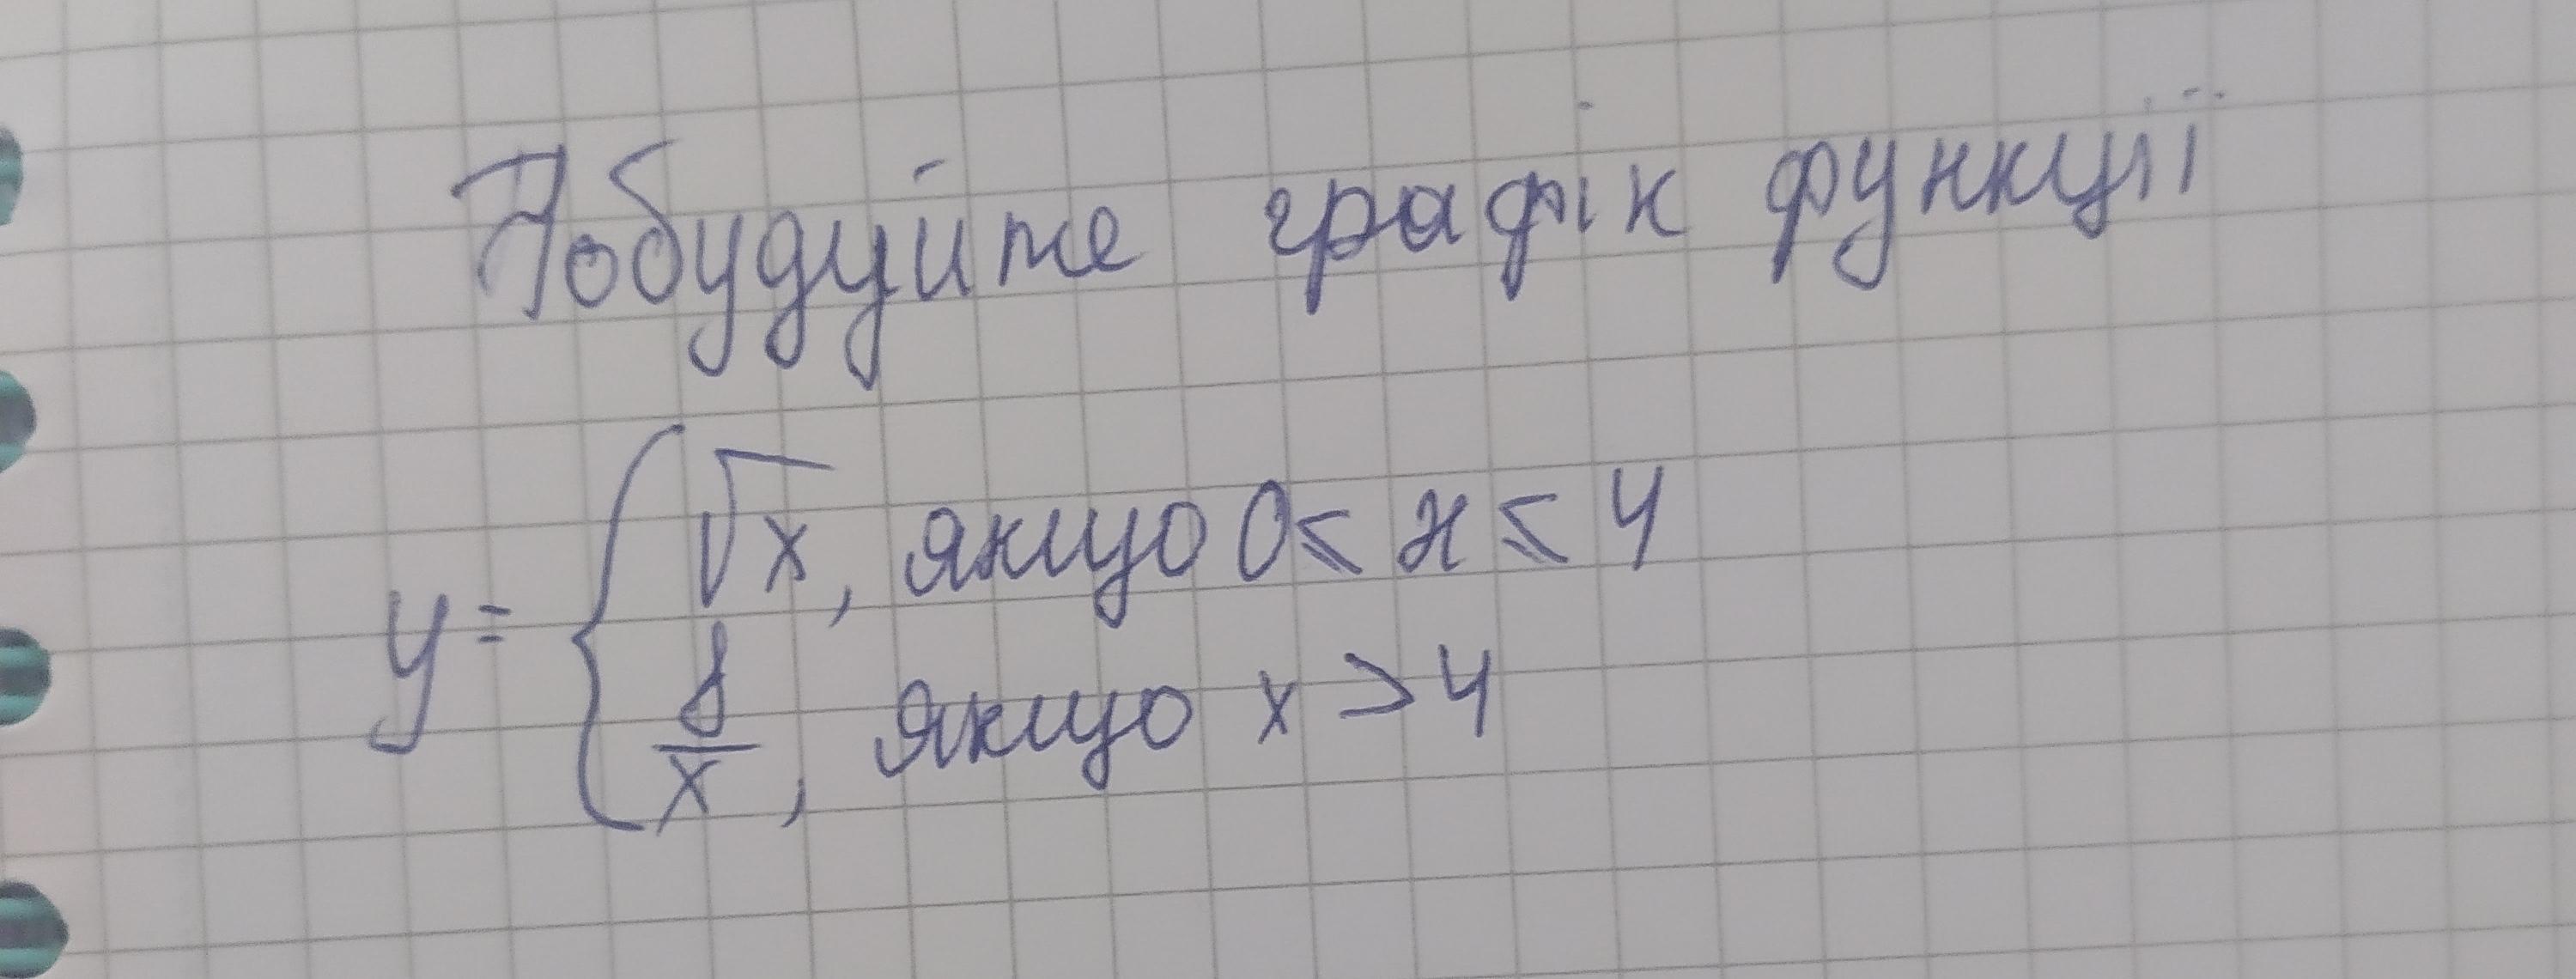 Побудуйте графік функції
y = { √x, якщо 0 ⩽ x ⩽ 4
8/x, якщо x > 4